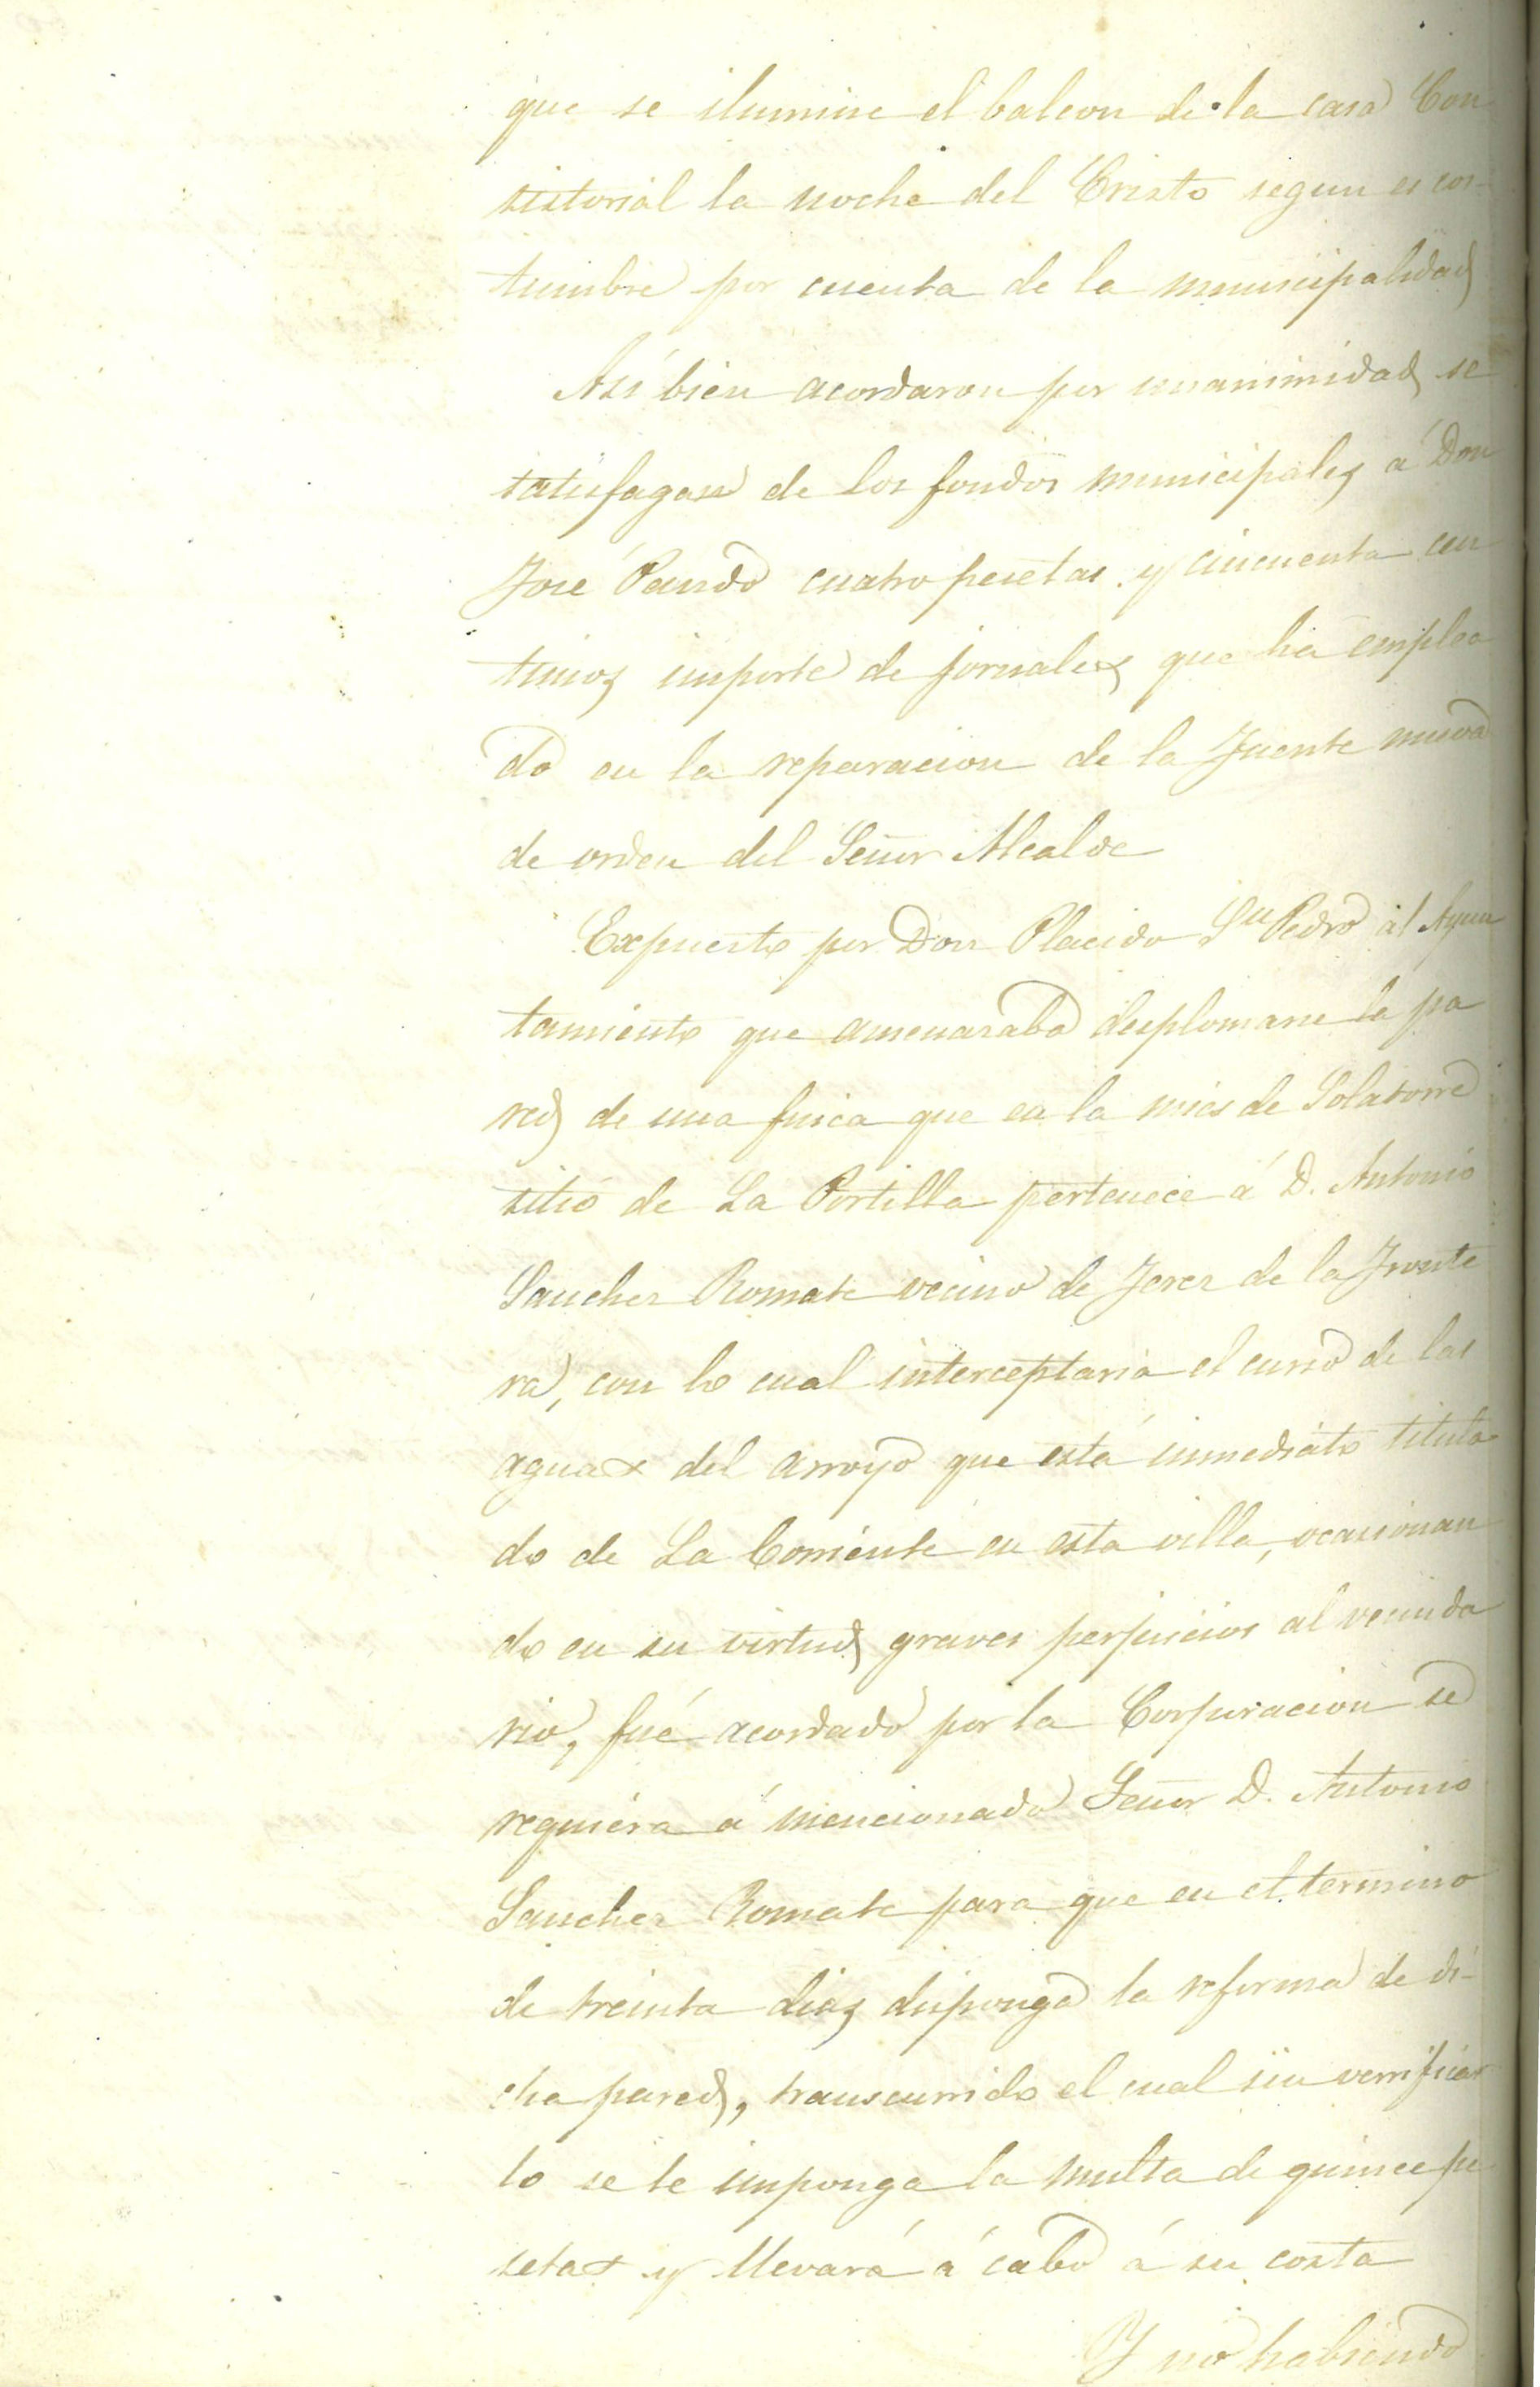 que se ilumine el balcon de la casa Con
sistorial la noche del Cristo segun es cos-
tumbre por cuenta de la municipalidad
Asi bien acordaron por unanimidad se
satisfagan de los fondos municipales á Don
José Pando cuatro pesetas y cincuenta cen
timos importe de jornales que ha emplea
do en la reparacion de la Fuente nueva
de orden del Señor Alcalde
Expuesto por Don Placido Sn Pedro al Ayun
tamiento que amenazaba desplomarse la pa
red de una finca que en la mies de Solatorre
sitio de La Portilla pertenece á D. Antonio
Sanchez Romate vecino de Jerez de la Fronte
ra, con lo cual interceptaria el curso de las
aguas del arroyo que está inmediato titula
do de La Corriente en esta villa, ocasionan
do en su virtud graves perjuicios al vecinda
rio, fué acordado por la Corporacion se
requiera á mencionado Señor D. Antonio
Sanchez Romate para que en el termino
de treinta dias disponga la reforma de di-
cha pared, transcurrido el cual sin verificar
lo se le imponga la multa de quince pe
setas y llevará á cabo á su costa
Y no habiendo